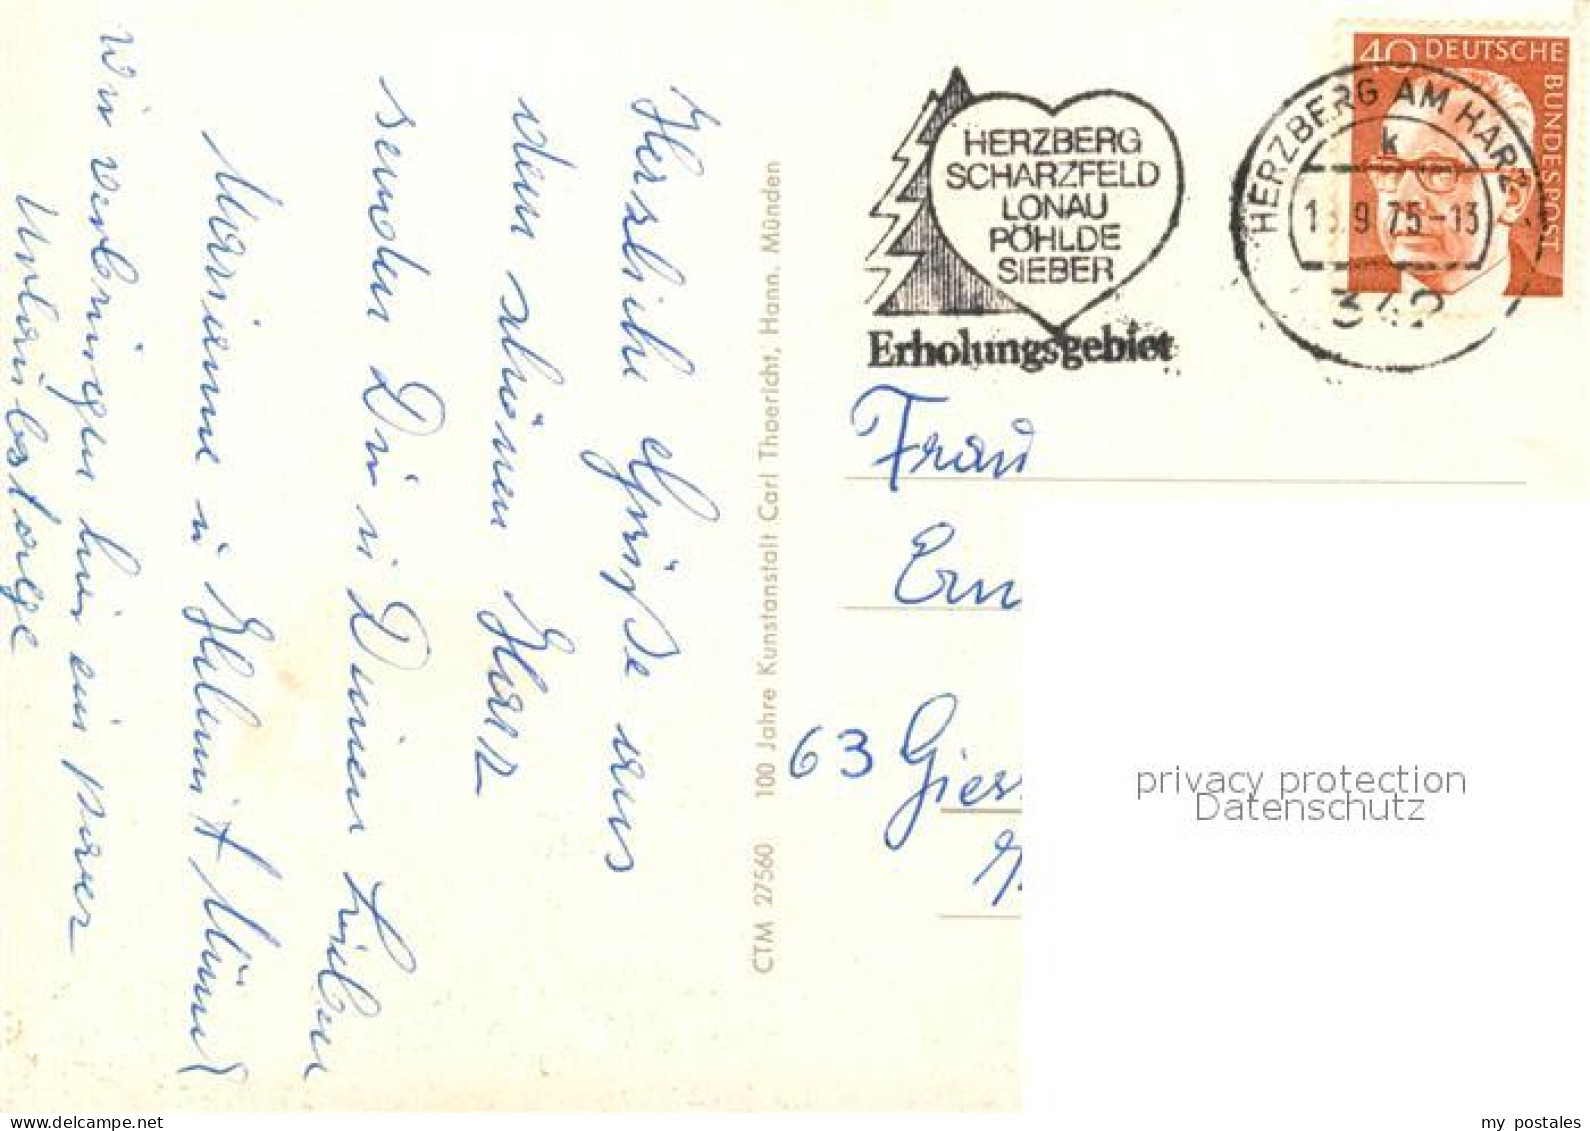 Herzliche Grüße aus
dem schönen Harz
senden Dir u Deinen Lieben
Marianne u Helmut
wir verbringen hier ein paar
Urlaubstage
CTM 27560 100 Jahre Kunstanstalt Carl Thoericht, Hann. Münden
HERZBERG
SCHARZFELD
LONAU
PÖHLDE
SIEBER
Erholungsgebiet
HERZBERG AM HARZ
k
9.75-13
342
40 DEUTSCHE
BUNDESPOST
Frau
Ern
63 Gies
privacy protection
Datenschutz
my postales